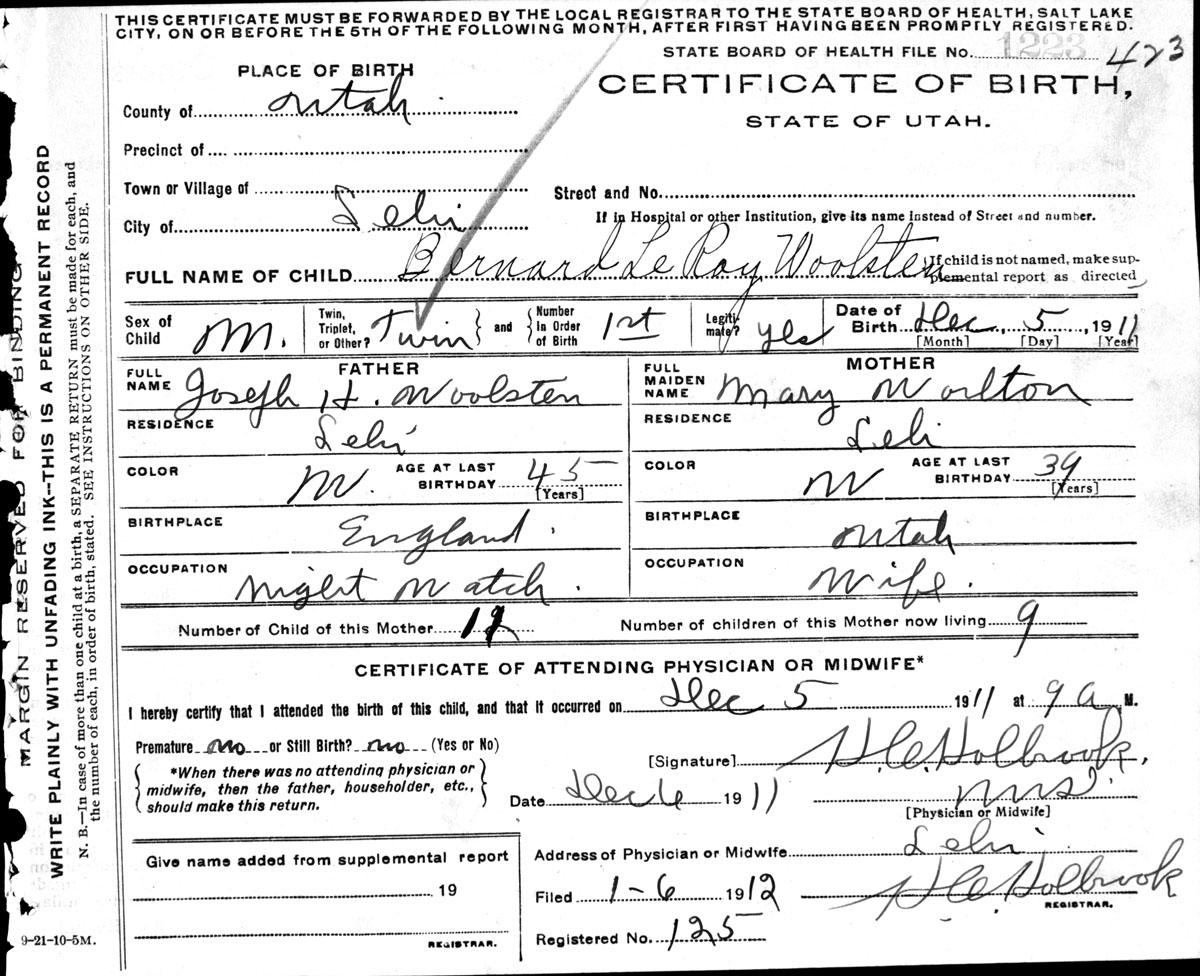 THIS CERTIFICATE MUST BE FORWARDED BY THE LOCAL REGISTRAR TO THE STATE BOARD OF HEALTH, SALT LAKE
CITY, ON OR BEFORE THE 5TH OF THE FOLLOWING MONTH, AFTER FIRST HAVING BEEN PROMPTLY REGISTERED.
STATE BOARD OF HEALTH FILE No. 1223 423
PLACE OF BIRTH
CERTIFICATE OF BIRTH,
STATE OF UTAH.
County of Utah
Precinct of
Town or Village of
Street and No.
City of Lehi
If in Hospital or other Institution, give its name instead of Street and number.
FULL NAME OF CHILD Bernard Le Roy Woolsten
If child is not named, make sup-
plemental report as directed
Sex of Child M.
Twin, Triplet, or Other? Twin and Number In Order of Birth 1st
Legiti-mate? yes
Date of Birth Dec, 5, 1911
[Month] [Day] [Year]
FATHER
FULL NAME Joseph H. Woolsten
RESIDENCE Lehi
COLOR W. AGE AT LAST BIRTHDAY 45
[Years]
BIRTHPLACE England.
OCCUPATION Night Watch.
MOTHER
FULL MAIDEN NAME Mary Worlton
RESIDENCE Lehi
COLOR W AGE AT LAST BIRTHDAY 39
[Years]
BIRTHPLACE Utah
OCCUPATION Wife.
Number of Child of this Mother 12 Number of children of this Mother now living 9
CERTIFICATE OF ATTENDING PHYSICIAN OR MIDWIFE*
I hereby certify that I attended the birth of this child, and that it occurred on Dec 5 1911 at 9 a M.
Premature no or Still Birth? no (Yes or No)
[Signature] H.C. Holbrook.
*When there was no attending physician or
midwife, then the father, householder, etc.,
should make this return.
Date Dec 6 1911
[Physician or Midwife]
Give name added from supplemental report
19
REGISTRAR.
Address of Physician or Midwife Lehi
Filed 1-6 1912 H.C. Holbrook
REGISTRAR.
Registered No. 125
9-21-10-5M.
MARGIN RESERVED FOR BINDING
WRITE PLAINLY WITH UNFADING INK—THIS IS A PERMANENT RECORD
N. B.—In case of more than one child at a birth, a SEPARATE RETURN must be made for each, and
the number of each, in order of birth, stated. SEE INSTRUCTIONS ON OTHER SIDE.